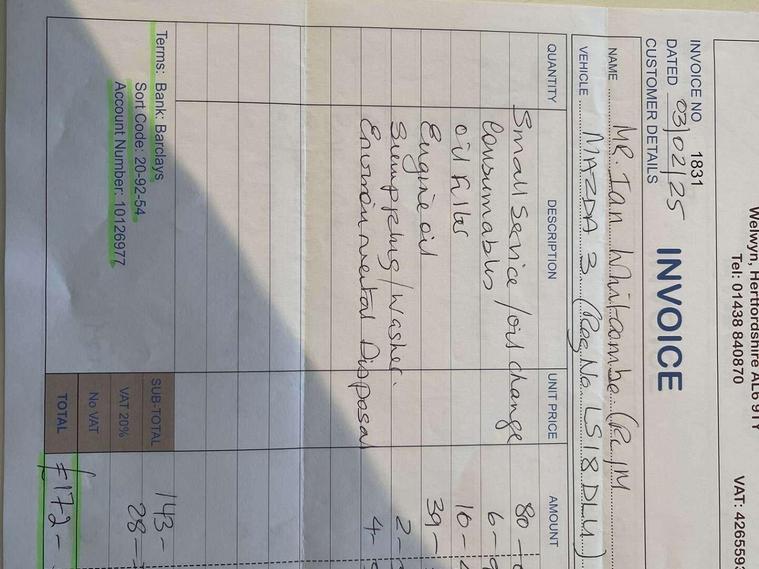 Welwyn, Hertfordshire AL6 9TY
Tel: 01438 840870
VAT: 4265593
INVOICE
INVOICE NO 1831
DATED 03/02/25
CUSTOMER DETAILS
NAME MR. Ian Whitcombe (R.I)M
VEHICLE MAZDA 3 (Reg No. LS18 DLU)
QUANTITY DESCRIPTION UNIT PRICE AMOUNT
Small Service / oil change 80 -
Consumables 6 -
oil filter 10 -
Engine oil 39 -
Sump plug / washer. 2 -
Environmental Disposal 4 -
Terms: Bank: Barclays
Sort Code: 20-92-54
Account Number: 10126977
SUB-TOTAL 143 -
VAT 20% 28 -
No VAT
TOTAL £172 -